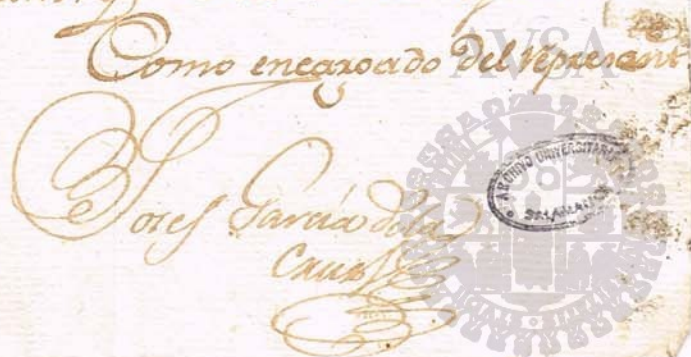 Como encargado Del represent
Josef Garcia dela
Cruz
AVSA
ARCHIVO UNIVERSITARIO
SALAMANCA